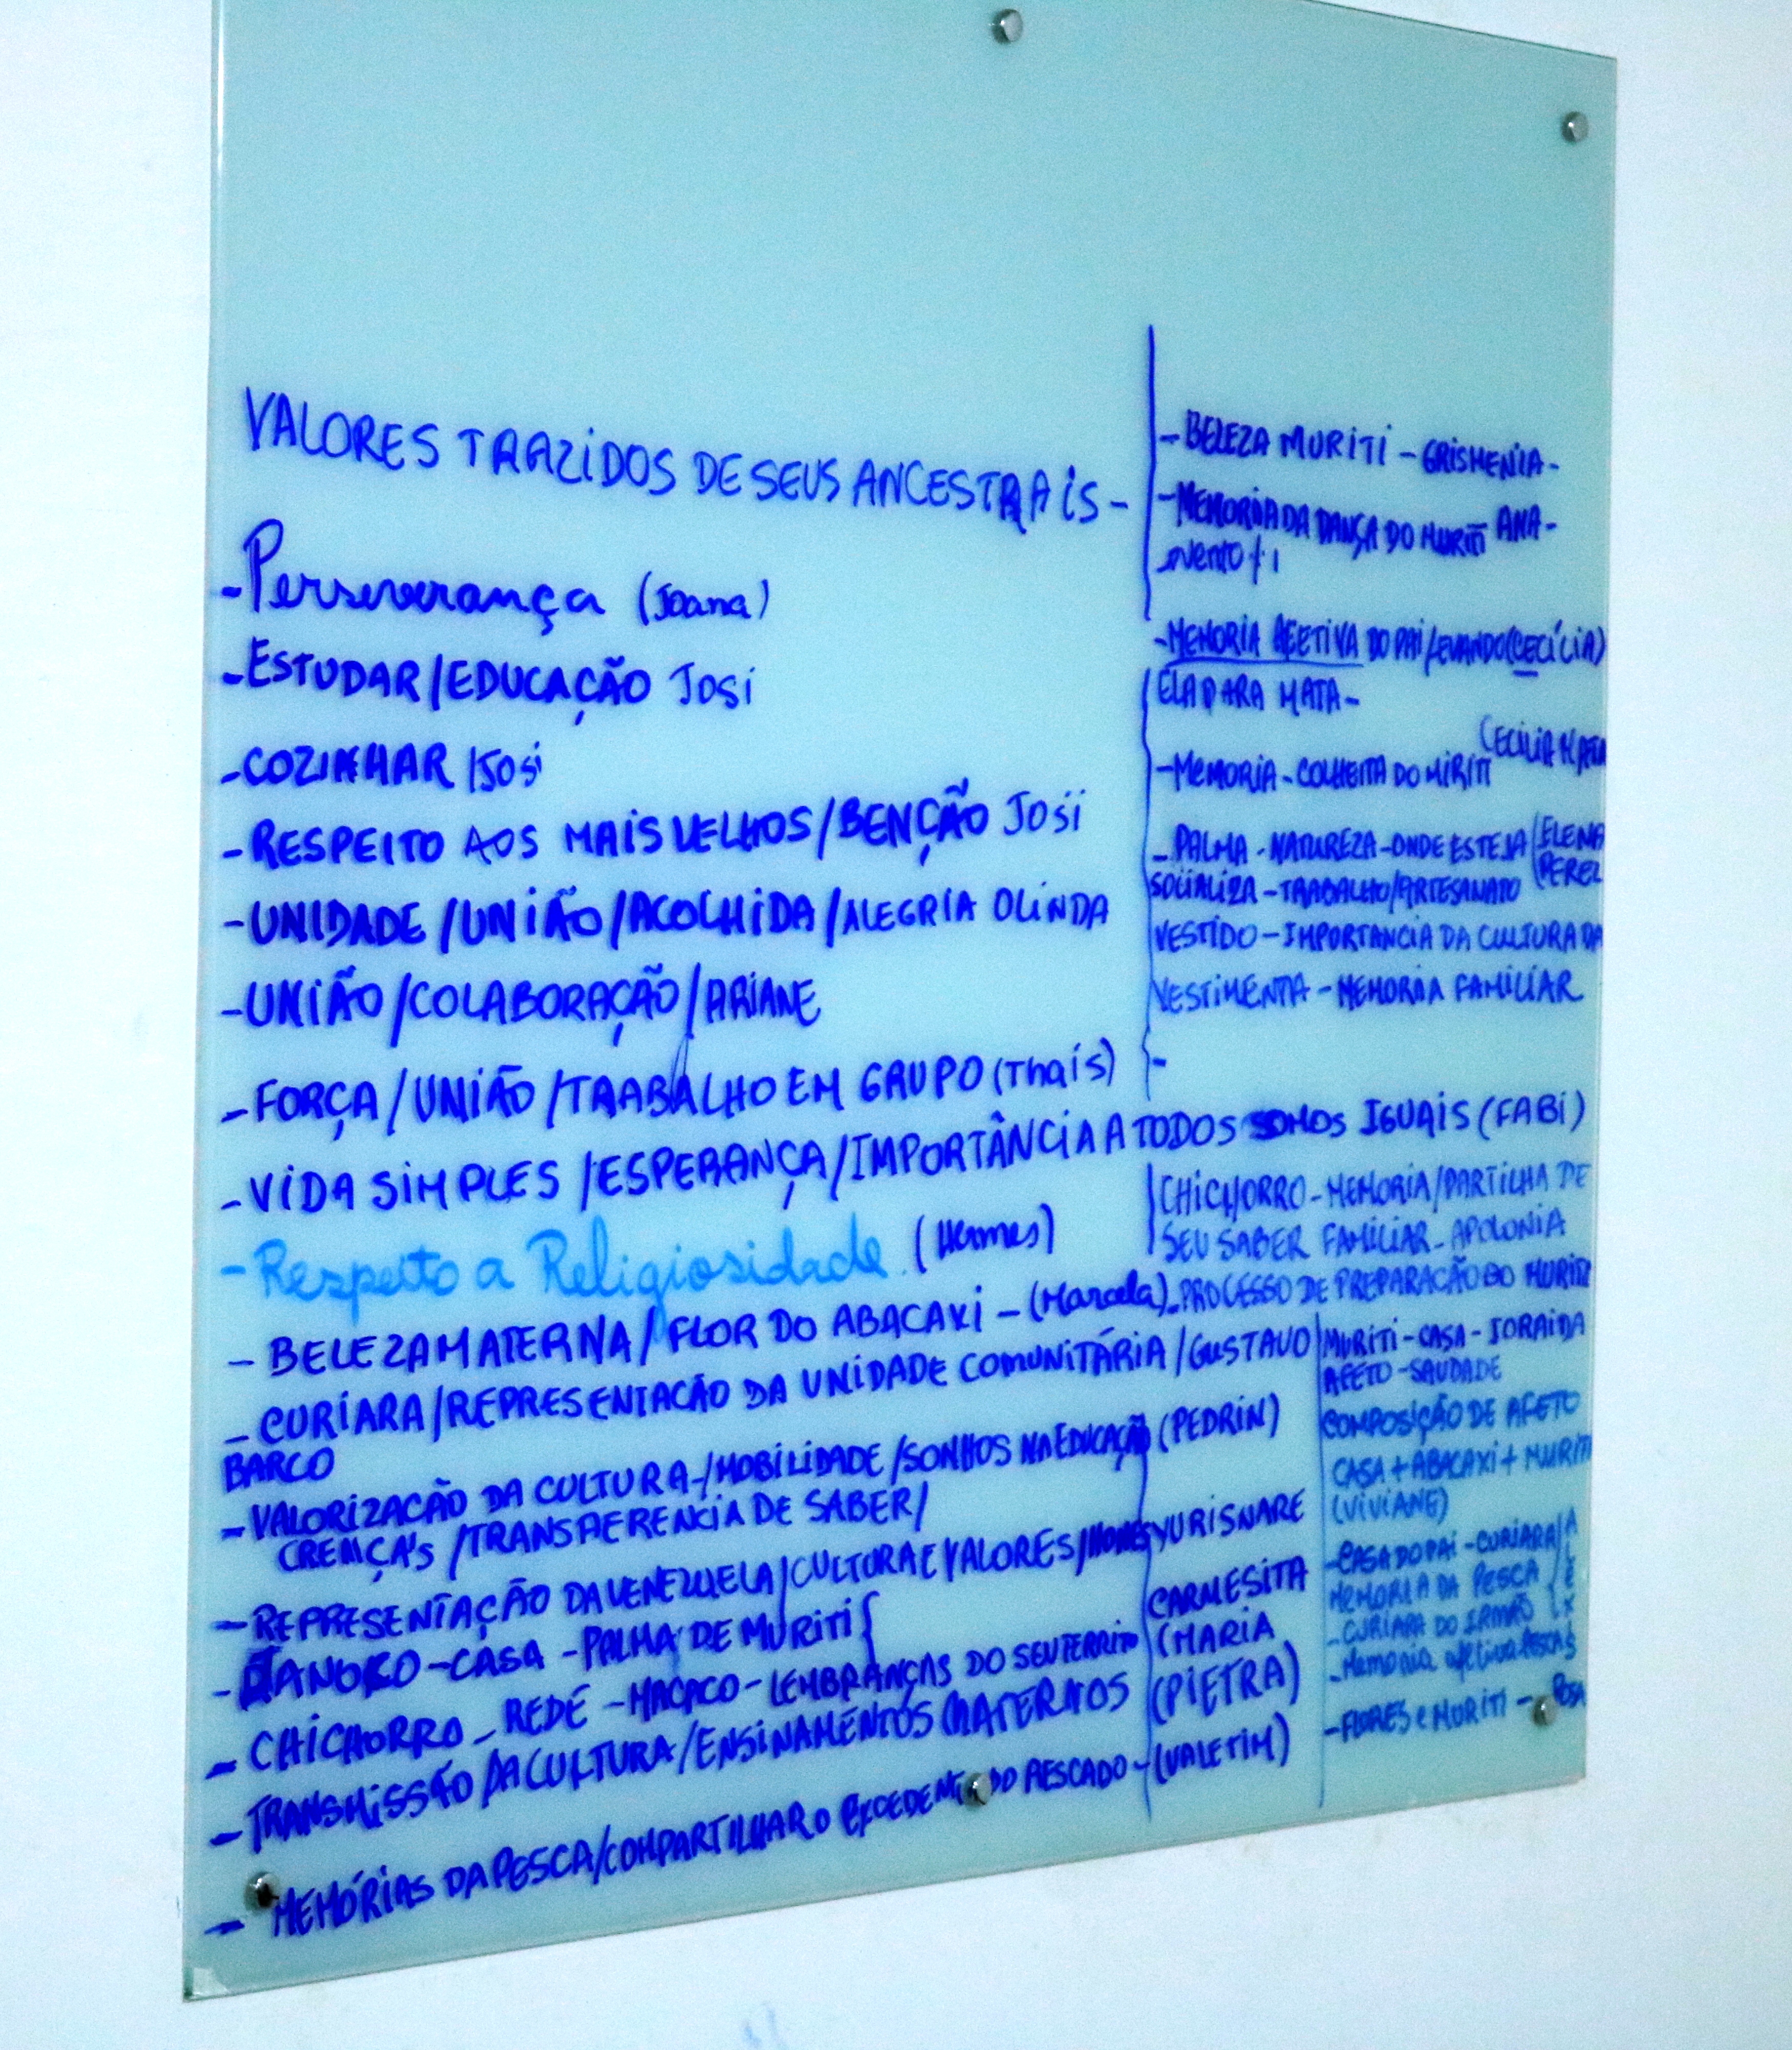 VALORES TRAZIDOS DE SEUS ANCESTRAIS -
- Perseverança (Joana)
- ESTUDAR/EDUCAÇÃO JOSI
- COZINHAR /JOSI
- RESPEITO AOS MAIS VELHOS/BENÇÃO JOSI
- UNIDADE/UNIÃO/ACOLHIDA/ALEGRIA OLINDA
- UNIÃO/COLABORAÇÃO/ARIANE
- FORÇA/UNIÃO/TRABALHO EM GRUPO (Thaís)
- VIDA SIMPLES/ESPERANÇA/IMPORTÂNCIA A TODOS SOMOS IGUAIS (FABI)
- Respeito a Religiosidade (Hermes)
- BELEZA MATERNA/FLOR DO ABACAXI - (Marcela)
- CURIARA/REPRESENTAÇÃO DA UNIDADE COMUNITÁRIA/GUSTAVO
BARCO
- VALORIZAÇÃO DA CULTURA-/MOBILIDADE/SONHOS NA EDUCAÇÃO (PEDRIN)
CRENÇA'S/TRANSFERENCIA DE SABER/
- REPRESENTAÇÃO DA VENEZUELA/CULTURA E VALORES/ YURISNARE
- JANOKO - CASA - PALHA DE MURITI { CARMESITA
- CHICHORRO - REDE - MACACO - LEMBRANÇAS DO SEU TERRITO (MARIA
- TRANSMISSÃO DA CULTURA/ENSINAMENTOS MATERNOS (PIETRA)
- MEMÓRIAS DA PESCA/COMPARTILHAR O EXCEDENTE DO PESCADO - (VALETIM)
- BELEZA MURITI - GRISMENIA -
- MEMORIA DA DANÇA DO MURITI ANA -
- MEMORIA AFETIVA DO PAI LEVANDO (CECÍLIA)
ELA PARA MATA -
- MEMORIA - COLHEITA DO MIRITI (CECILIA MATA
- PALMA - NATUREZA - ONDE ESTEJA (ELENA
SOCIALIZA - TRABALHO/ARTESANATO (PEREZ
VESTIDO - IMPORTANCIA DA CULTURA DA
VESTIMENTA - MEMORIA FAMILIAR
-
CHICHORRO - MEMORIA/PARTILHA DE
SEU SABER FAMILIAR - APOLONIA
- PROCESSO DE PREPARAÇÃO DO MURITI
MURITI - CASA - ZORAIDA
AFETO - SAUDADE
COMPOSIÇÃO DE AFETO
CASA + ABACAXI + MURITI
(VIVIANE)
- CASA DO PAI - CURIARA/
MEMORIA DA PESCA
- CURIARA DO IRMÃO
- Memoria afetiva
- FLORES e MURITI - ROSA